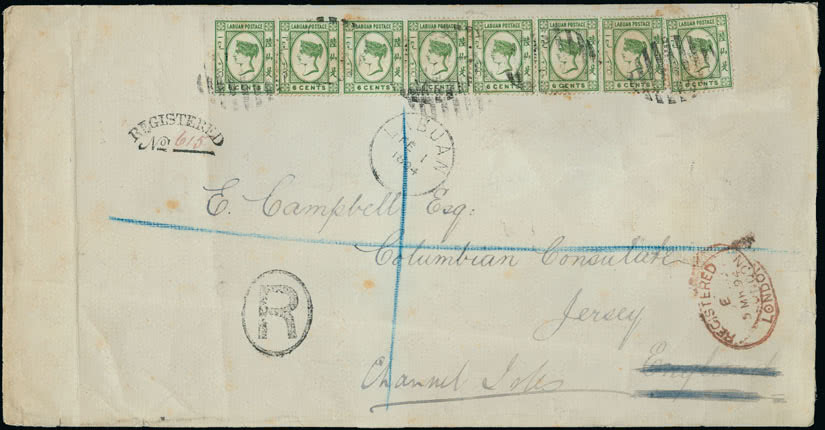 LABUAN POSTAGE LABUAN POSTAGE LABUAN POSTAGE LABUAN POSTAGE LABUAN POSTAGE LABUAN POSTAGE LABUAN POSTAGE LABUAN POSTAGE
6 CENTS 6 CENTS 6 CENTS 6 CENTS 6 CENTS 6 CENTS 6 CENTS 6 CENTS
REGISTERED
No 615
LABUAN
FE 1
1894
E. Campbell Esq:
Columbian Consulate
Jersey
England
Channel Isles
R
REGISTERED
LONDON
E
5 MH 94